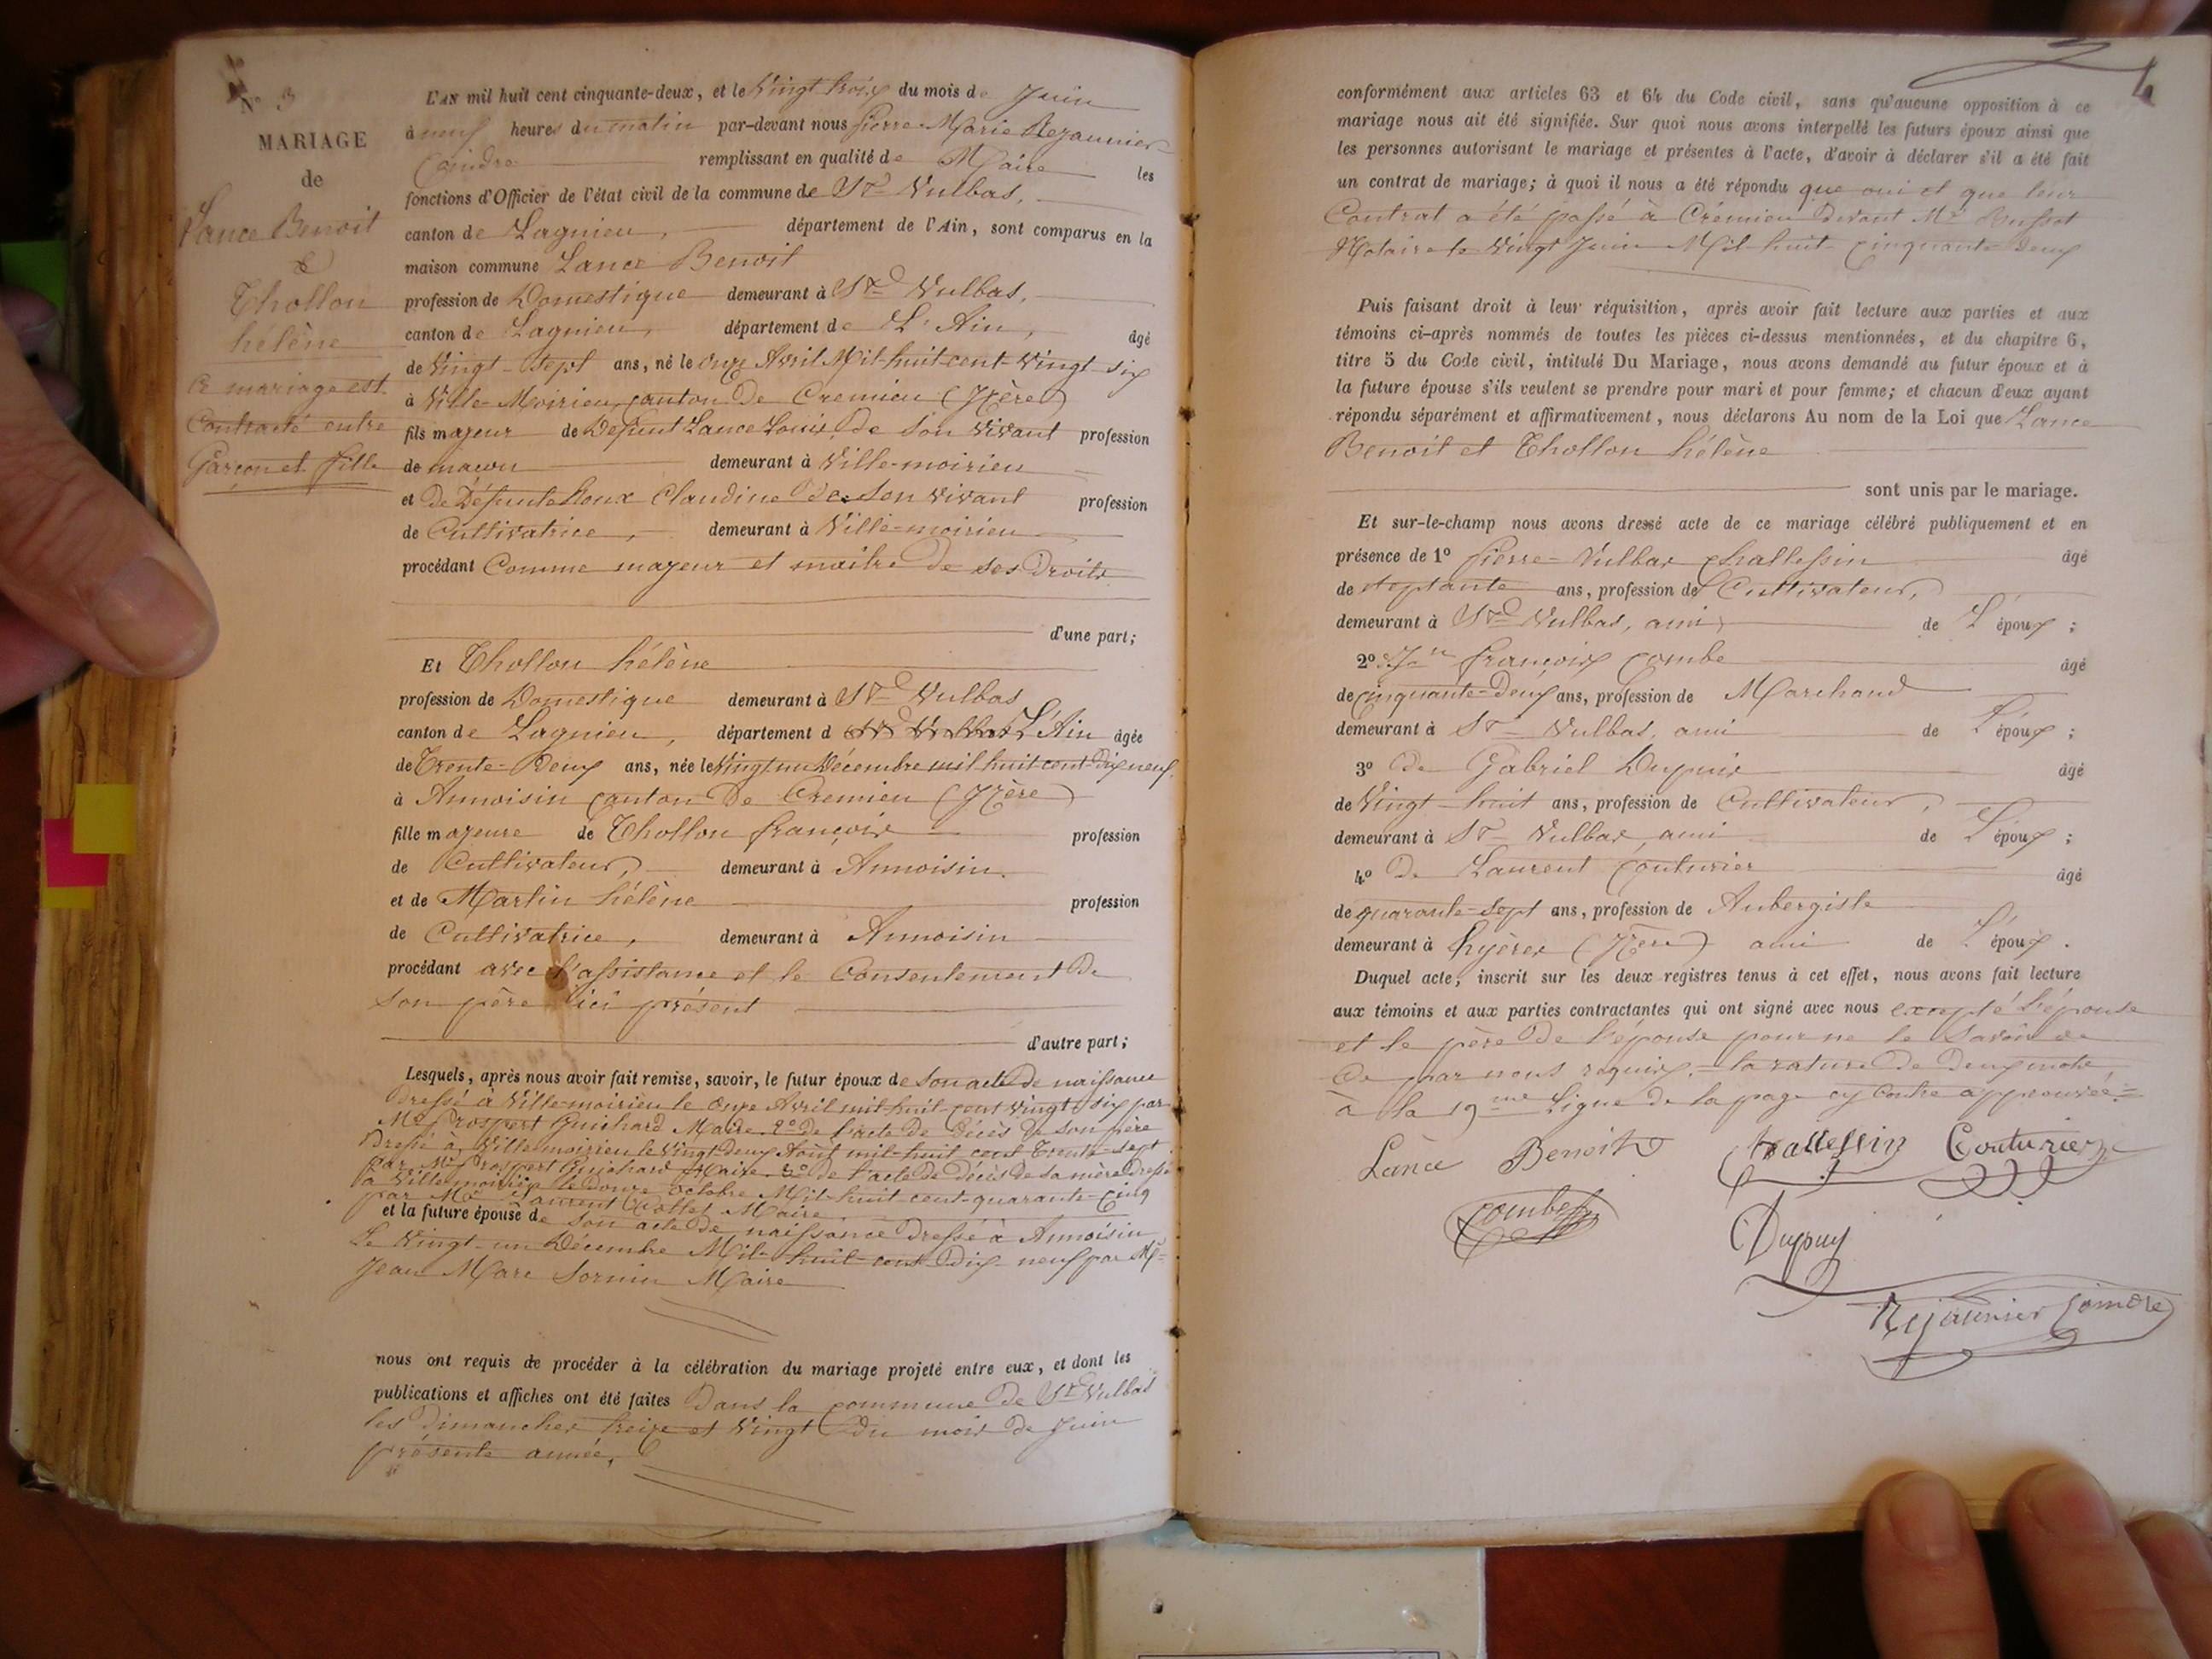 N° 3
MARIAGE
de
Lance Benoit
&
Thollon
hélène
Ce mariage est
Contracté entre
Garçon et fille
L'AN mil huit cent cinquante-deux, et le Vingt trois du mois de Juin
à neuf heures du matin par-devant nous Pierre Marie Rejaunier
Coindre remplissant en qualité de Maire les
fonctions d'Officier de l'état civil de la commune de St Vulbas,
canton de Lagnieu, département de l'Ain, sont comparus en la
maison commune Lance Benoit
profession de Domestique demeurant à St Vulbas,
canton de Lagnieu, département de L'Ain, âgé
de Vingt-Sept ans, né le onze Avril Mil-huit-cent-Vingt-six
à Ville-Moirieu, canton De Cremieu (Izère)
fils majeur de Defunt Lance Louis, De son vivant profession
de maçon demeurant à Ville-moirieu
et De Défunte Roux Claudine De son vivant profession
de Cultivatrice, demeurant à Ville-moirieu
procédant Comme majeur et maître De ses Droits
d'une part;
Et Thollon hélène
profession de Domestique demeurant à St Vulbas
canton de Lagnieu, département d St Vulbas L'Ain âgée
de Trente-Deux ans, née le Vingt un Décembre mil huit cent-Dix neuf
à Annoisin Canton De Cremieu (Izère)
fille majeure de Thollon françois profession
de Cultivateur, demeurant à Annoisin.
et de Martin hélène profession
de Cultivatrice, demeurant à Annoisin
procédant avec l'assistance et le Consentement De
son père ici présent
d'autre part;
Lesquels, après nous avoir fait remise, savoir, le futur époux de son acte De naissance
Dressé à Ville-moirieu le onze Avril mil-huit-cent vingt six par
Me Prospert Guichard Maire 2° De l'acte De Décès De son père
Dressé à Villemoirieu le Vingt-deux Août mil-huit cent Trente-sept
par Me Prospert Guichard Maire 3° de l'acte De Décès de sa mère Dressé
à Villemoirieu le Douze octobre Mil-huit cent-quarante-Cinq
par Me Laurent Maire
et la future épouse de son acte De naissance Dressé à Annoisin
Le Vingt-un Décembre Mil-huit-cent-Dix-neuf par Me
Jean Marc Sornin Maire
nous ont requis de procéder à la célébration du mariage projeté entre eux, et dont les
publications et affiches ont été faites Dans la commune De St Vulbas
les Dimanches treize et Vingt Du mois De Juin
présente année,
4
conformément aux articles 63 et 64 du Code civil, sans qu'aucune opposition à ce
mariage nous ait été signifiée. Sur quoi nous avons interpellé les futurs époux ainsi que
les personnes autorisant le mariage et présentes à l'acte, d'avoir à déclarer s'il a été fait
un contrat de mariage; à quoi il nous a été répondu que oui et que leur
Contrat a été passé à Crémieu Devant Me
Notaire le Vingt Juin Mil-huit-Cinquante-Deux
Puis faisant droit à leur réquisition, après avoir fait lecture aux parties et aux
témoins ci-après nommés de toutes les pièces ci-dessus mentionnées, et du chapitre 6,
titre 5 du Code civil, intitulé Du Mariage, nous avons demandé au futur époux et à
la future épouse s'ils veulent se prendre pour mari et pour femme; et chacun d'eux ayant
répondu séparément et affirmativement, nous déclarons Au nom de la Loi que Lance
Benoit et Thollon hélène
sont unis par le mariage.
Et sur-le-champ nous avons dressé acte de ce mariage célébré publiquement et en
présence de 1° Pierre-Vulbas Challessin âgé
de Septante ans, profession de Cultivateur,
demeurant à St Vulbas, ami de L'époux;
2° françois Combe âgé
de cinquante-Deux ans, profession de Marchand
demeurant à St Vulbas, ami de L'époux;
3° De Gabriel Dupuis âgé
de Vingt-huit ans, profession de Cultivateur,
demeurant à St Vulbas, ami de L'époux;
4° De Laurent Couturier âgé
de quarante-Sept ans, profession de Aubergiste
demeurant à hyères (Izère) ami de L'époux.
Duquel acte, inscrit sur les deux registres tenus à cet effet, nous avons fait lecture
aux témoins et aux parties contractantes qui ont signé avec nous excepté l'épouse
et le père De l'épouse pour ne le Savoir de
Ce par nous requis. la rature De Deux mots
à la 19me Ligne de la page cy contre approuvée.=
Lance Benoit Challessin Couturier
Combe
Dupuy
Rejaunier Coindre